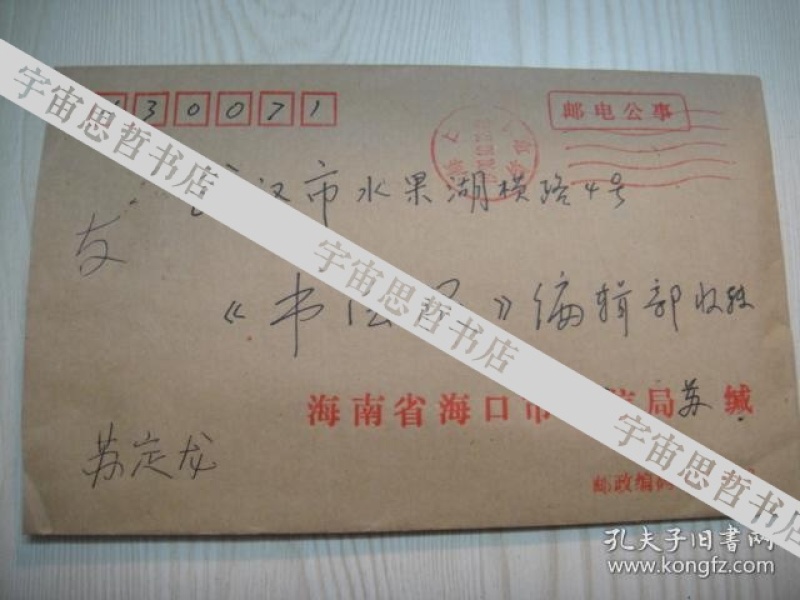 430071
邮电公事
武汉市水果湖横路4号
友
《书法报》编辑部收
海南省海口市 信局苏缄
苏定龙
邮政编码
宇宙思哲书店
宇宙思哲书店
宇宙思哲书店
孔夫子旧书网
www.kongfz.com